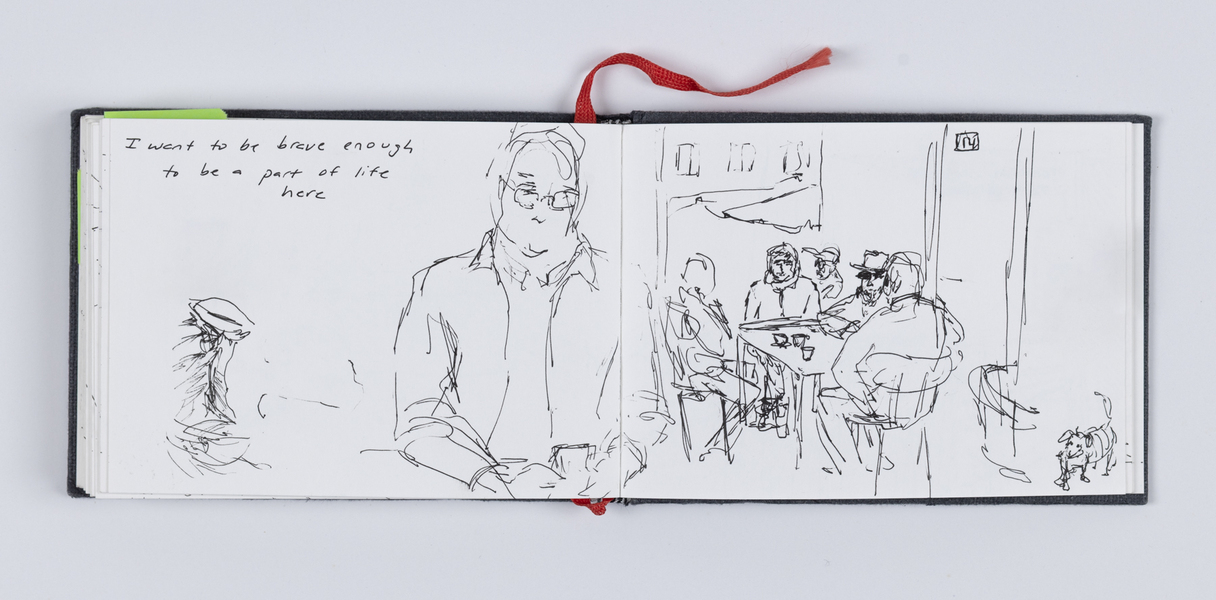 I want to be brave enough
to be a part of life
here